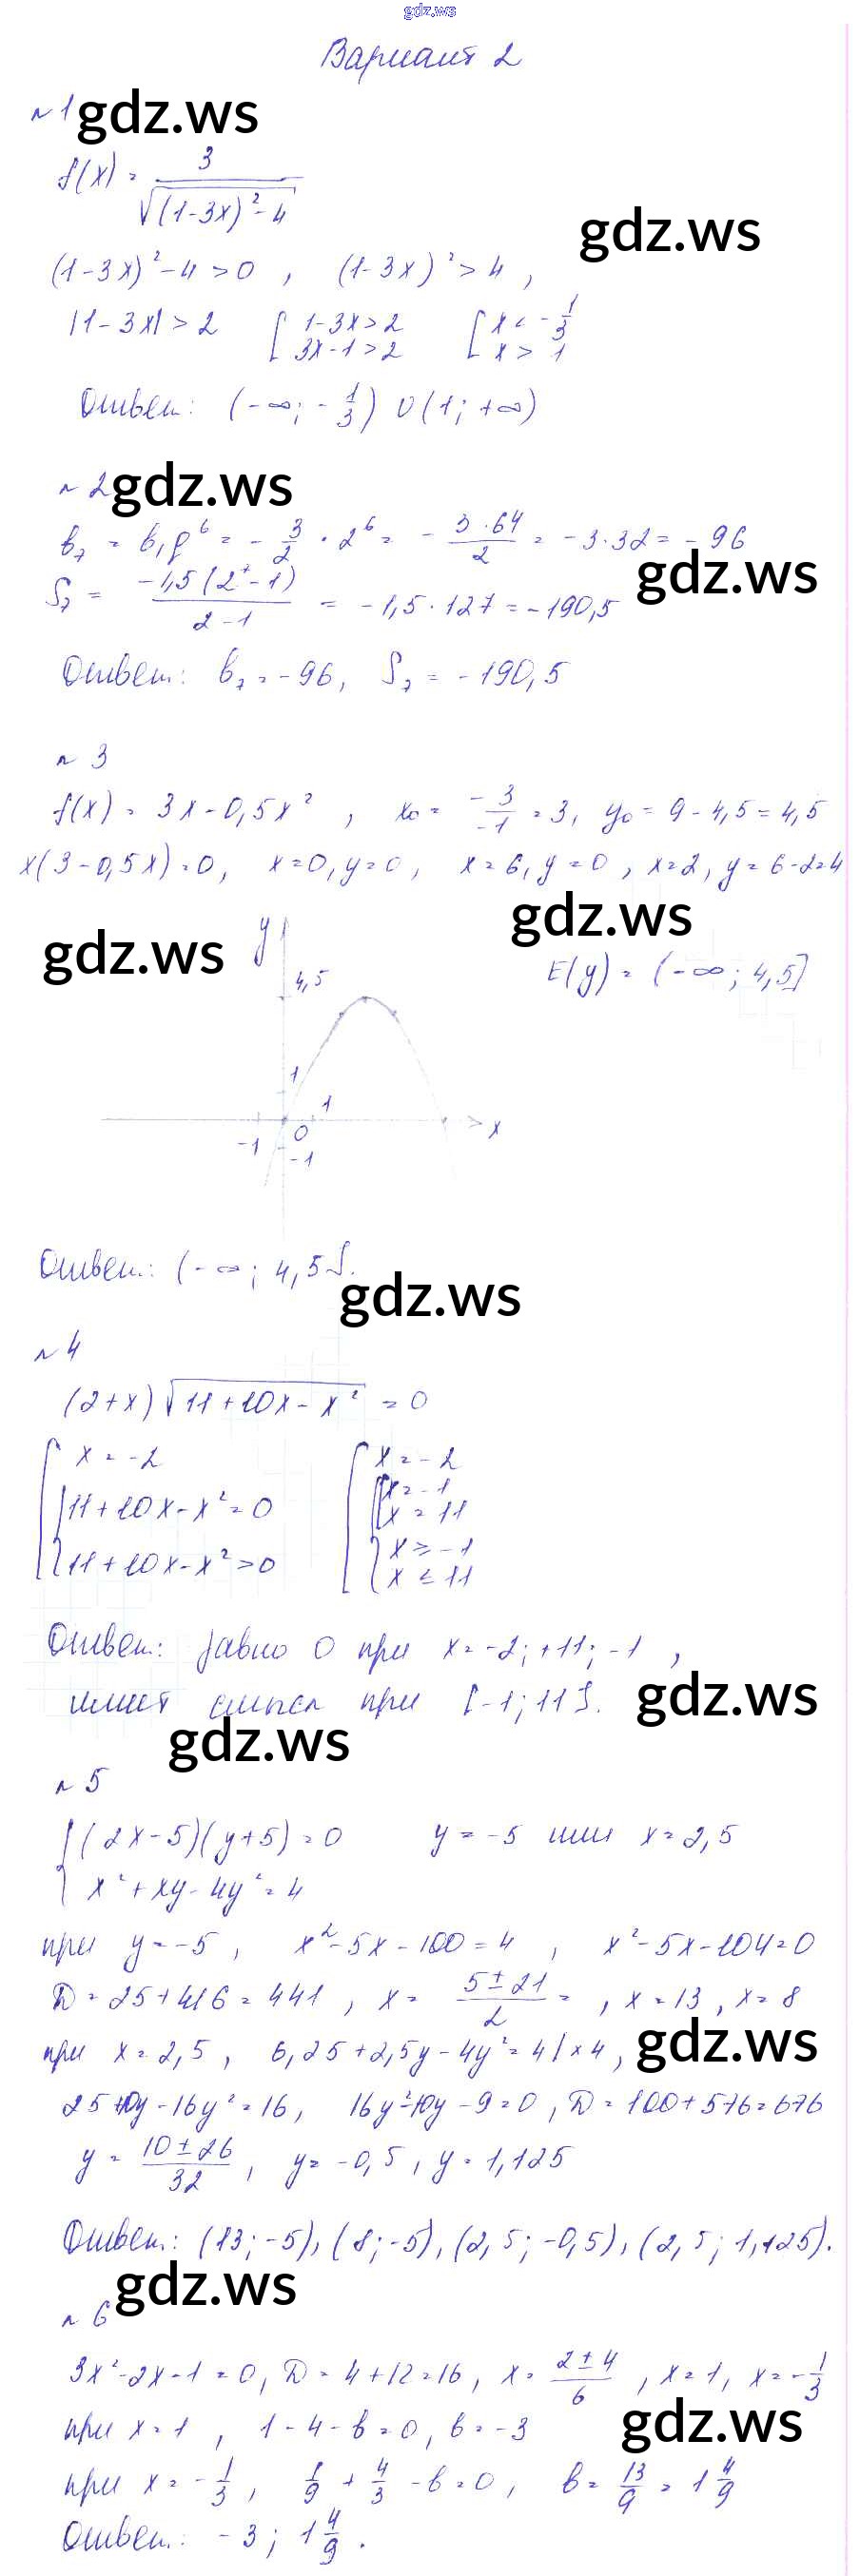 gdz.ws
Вариант 2
№1 gdz.ws
f(x) = 3/√((1-3x)²-4)
gdz.ws
(1-3x)²-4>0 , (1-3x)²>4 ,
|1-3x|>2 [ 1-3x>2 [ x< -1/3
3x-1>2 x> 1
Ответ: (-∞; -1/3) ∪ (1; +∞)
№2 gdz.ws
b₇ = b₁q⁶ = -3/2 · 2⁶ = -3·64/2 = -3·32 = -96
gdz.ws
S₇ = -1,5(2⁷-1)/2-1 = -1,5·127 = -190,5
Ответ: b₇ = -96, S₇ = -190,5
№3
f(x) = 3x-0,5x² , x₀ = -3/-1 = 3, y₀ = 9-4,5 = 4,5
x(3-0,5x)=0, x=0, y=0, x=6, y=0, x=2, y=6-2=4
gdz.ws
gdz.ws
y
E(y) = (-∞; 4,5]
4,5
1
1
0
x
-1
-1
Ответ: (-∞; 4,5].
gdz.ws
№4
(2+x)√(11+10x-x²) = 0
[ x = -2 [ x = -2
{ 11+10x-x² = 0 { [ x = -1
x = 11
11+10x-x²>0 { x ≥ -1
x ≤ 11
Ответ: равно 0 при x = -2; +11; -1 ,
имеет смысл при [-1; 11].
gdz.ws
gdz.ws
№5
{ (2x-5)(y+5)=0 y = -5 или x = 2,5
x²+xy-4y²=4
при y = -5 , x²-5x-100=4 , x²-5x-104=0
D = 25+416 = 441 , x = 5±21/2 = , x = 13 , x = 8
при x = 2,5 , 6,25+2,5y-4y²=4|×4 ,
gdz.ws
25+10y-16y²=16, 16y²-10y-9=0, D = 100+576=676
y = 10±26/32 , y = -0,5 , y = 1,125
Ответ: (13; -5), (8; -5), (2,5; -0,5), (2,5; 1,125).
gdz.ws
№6
3x²-2x-1=0, D = 4+12=16, x = 2±4/6 , x = 1, x = -1/3
gdz.ws
при x = 1 , 1-4-b=0, b = -3
при x = -1/3 , 1/9 + 4/3 - b = 0 , b = 13/9 = 1 4/9
Ответ: -3; 1 4/9 .